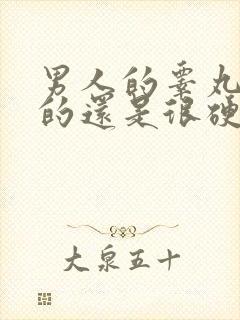 男人的睾丸
的還是很硬
大泉五十